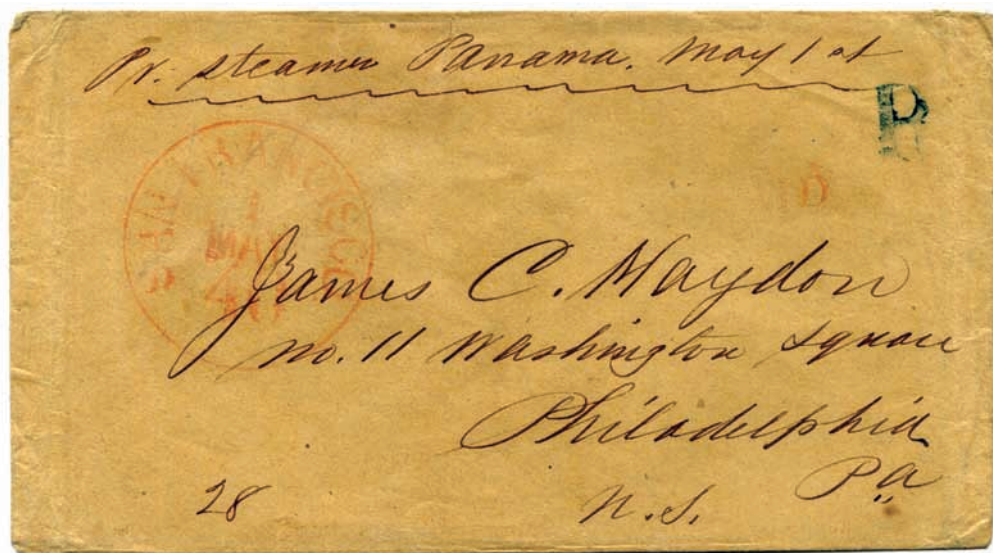 Pr. steamer Panama. May 1st
D
D
SAN FRANCISCO
1
MAY
40
James C. Haydon
no. 11 Washington Square
Philadelphia
Pa
28
n. S.